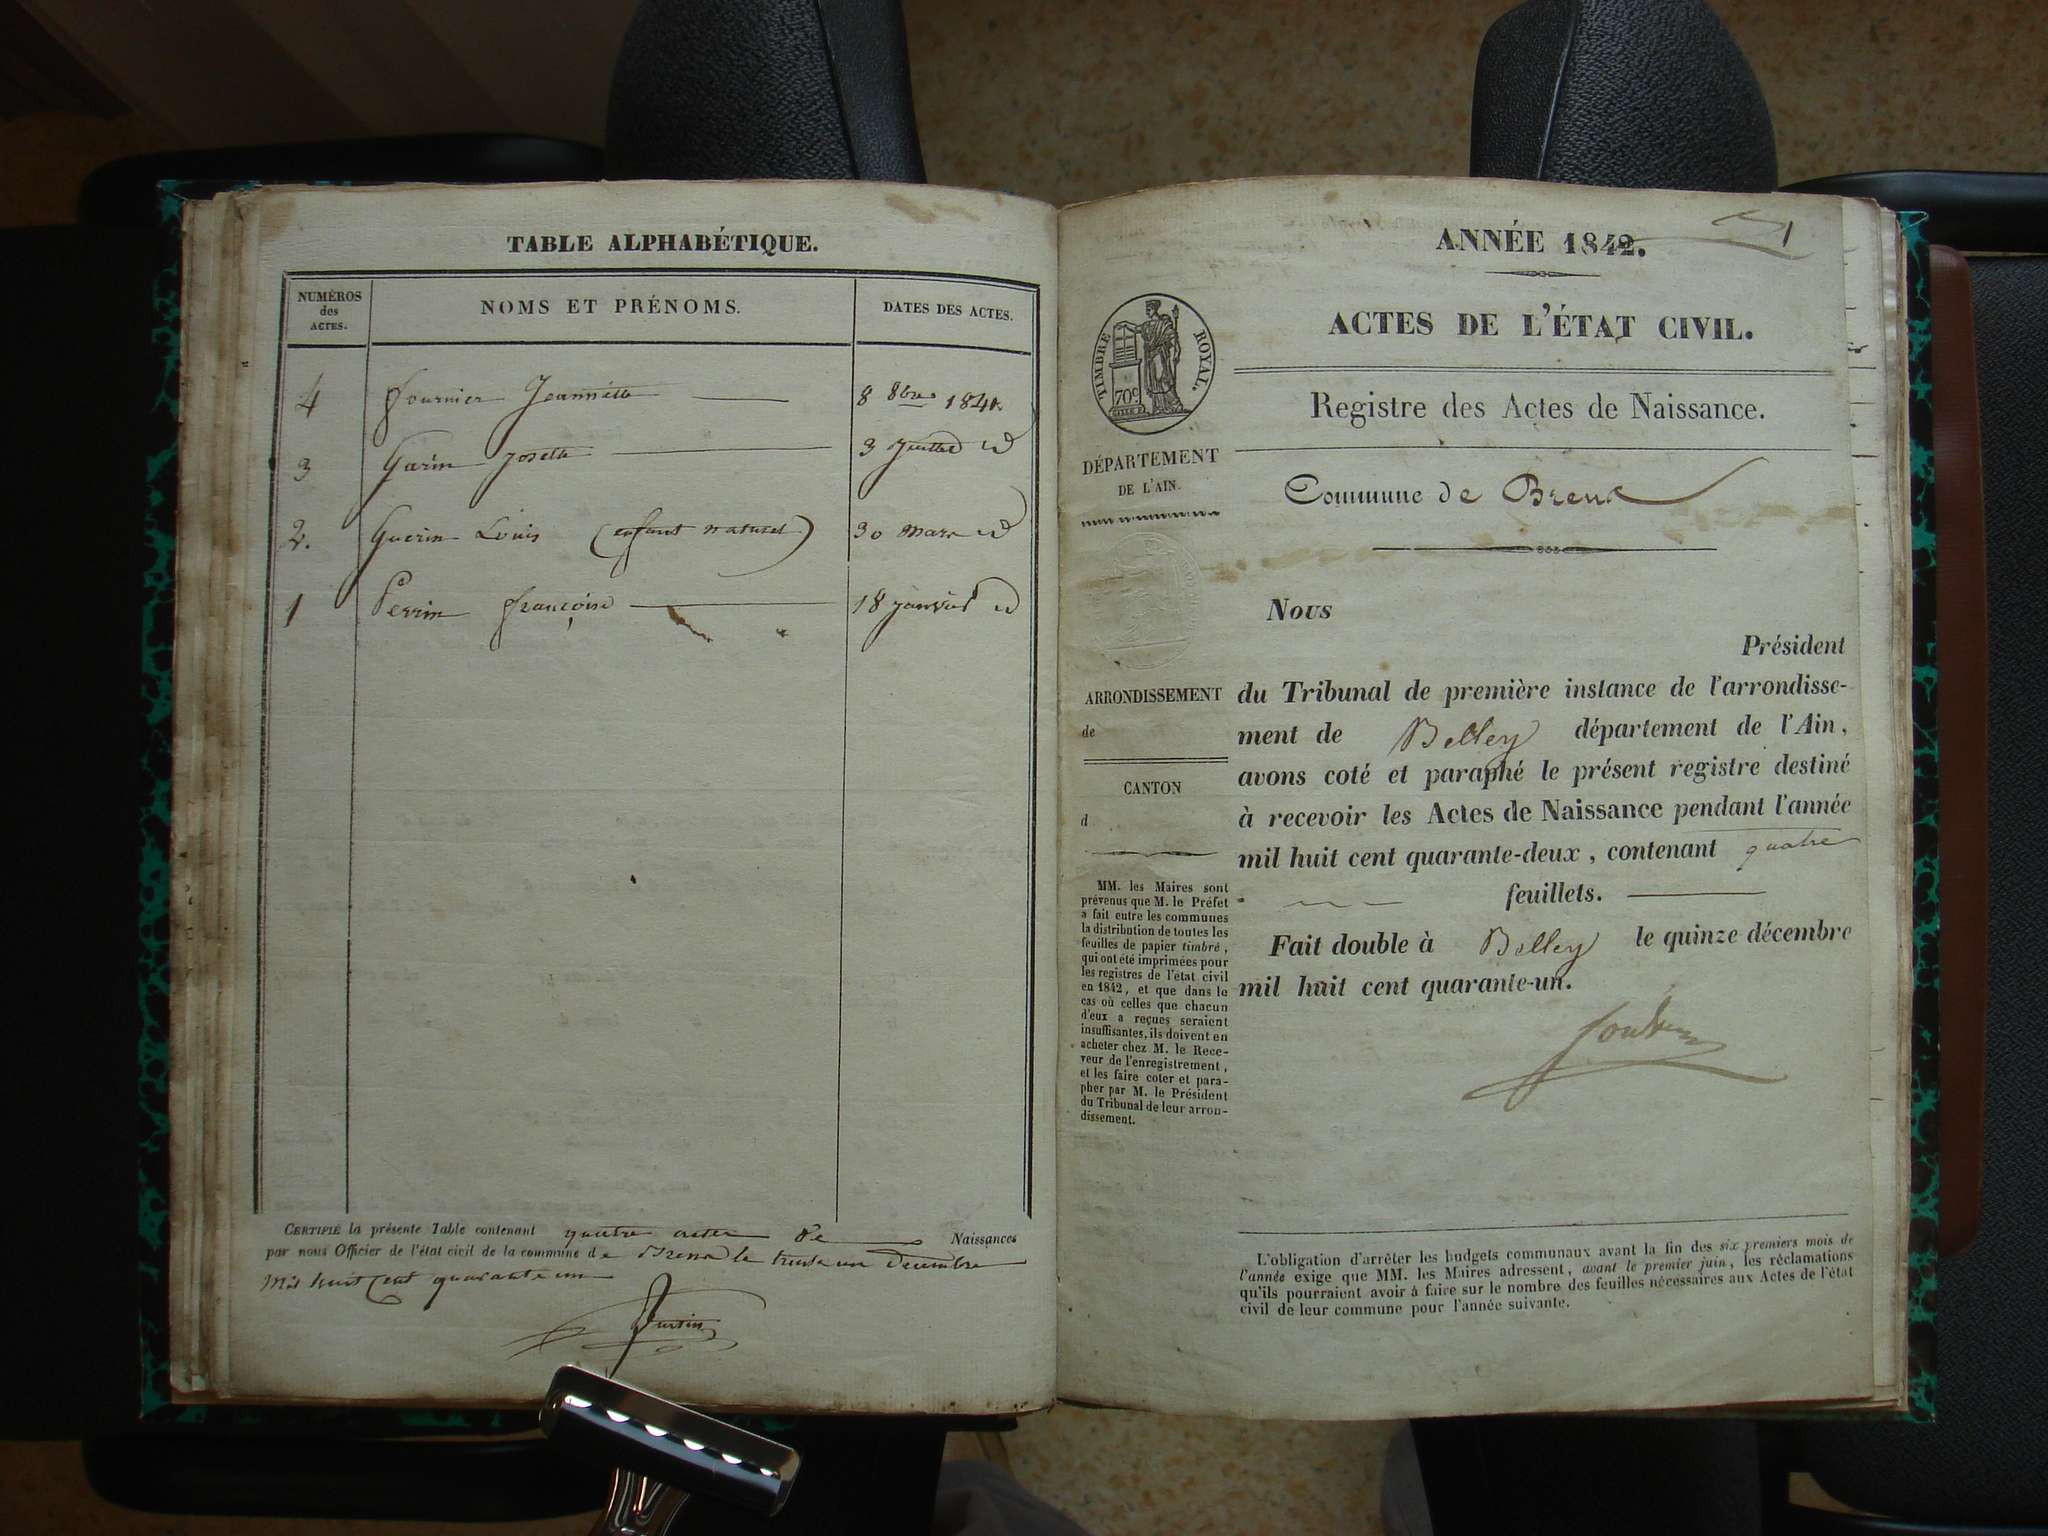 TABLE ALPHABÉTIQUE.
NUMÉROS des ACTES.
NOMS ET PRÉNOMS.
DATES DES ACTES.
4 fournier Jeannette 8 8bre 1841
3 Garin Josette 3 Juillet id
2. Guerin Louis (enfant naturel) 30 mars id
1 Perrin françoise 18 janvier id
CERTIFIÉ la présente Table contenant quatre actes de Naissances
par nous Officier de l'état civil de la commune de Brens le trente un Decembre
Mil huit Cent quarante un
ANNÉE 1842.
1
ACTES DE L'ÉTAT CIVIL.
TIMBRE ROYAL.
70c
Registre des Actes de Naissance.
DÉPARTEMENT
DE L'AIN.
Commune de Brens
Nous
Président
du Tribunal de première instance de l'arrondisse-
ment de Belley département de l'Ain,
avons coté et paraphé le présent registre destiné
à recevoir les Actes de Naissance pendant l'année
mil huit cent quarante-deux, contenant quatre
feuillets.
Fait double à Belley le quinze décembre
mil huit cent quarante-un.
ARRONDISSEMENT
de
CANTON
d
MM. les Maires sont
prévenus que M. le Préfet
a fait entre les communes
la distribution de toutes les
feuilles de papier timbré,
qui ont été imprimées pour
les registres de l'état civil
en 1842, et que dans le
cas où celles que chacun
d'eux a reçues seraient
insuffisantes, ils doivent en
acheter chez M. le Rece-
veur de l'enregistrement,
et les faire coter et para-
pher par M. le Président
du Tribunal de leur arron-
dissement.
L'obligation d'arrêter les budgets communaux avant la fin des six premiers mois de
l'année exige que MM. les Maires adressent, avant le premier juin, les réclamations
qu'ils pourraient avoir à faire sur le nombre des feuilles nécessaires aux Actes de l'état
civil de leur commune pour l'année suivante.